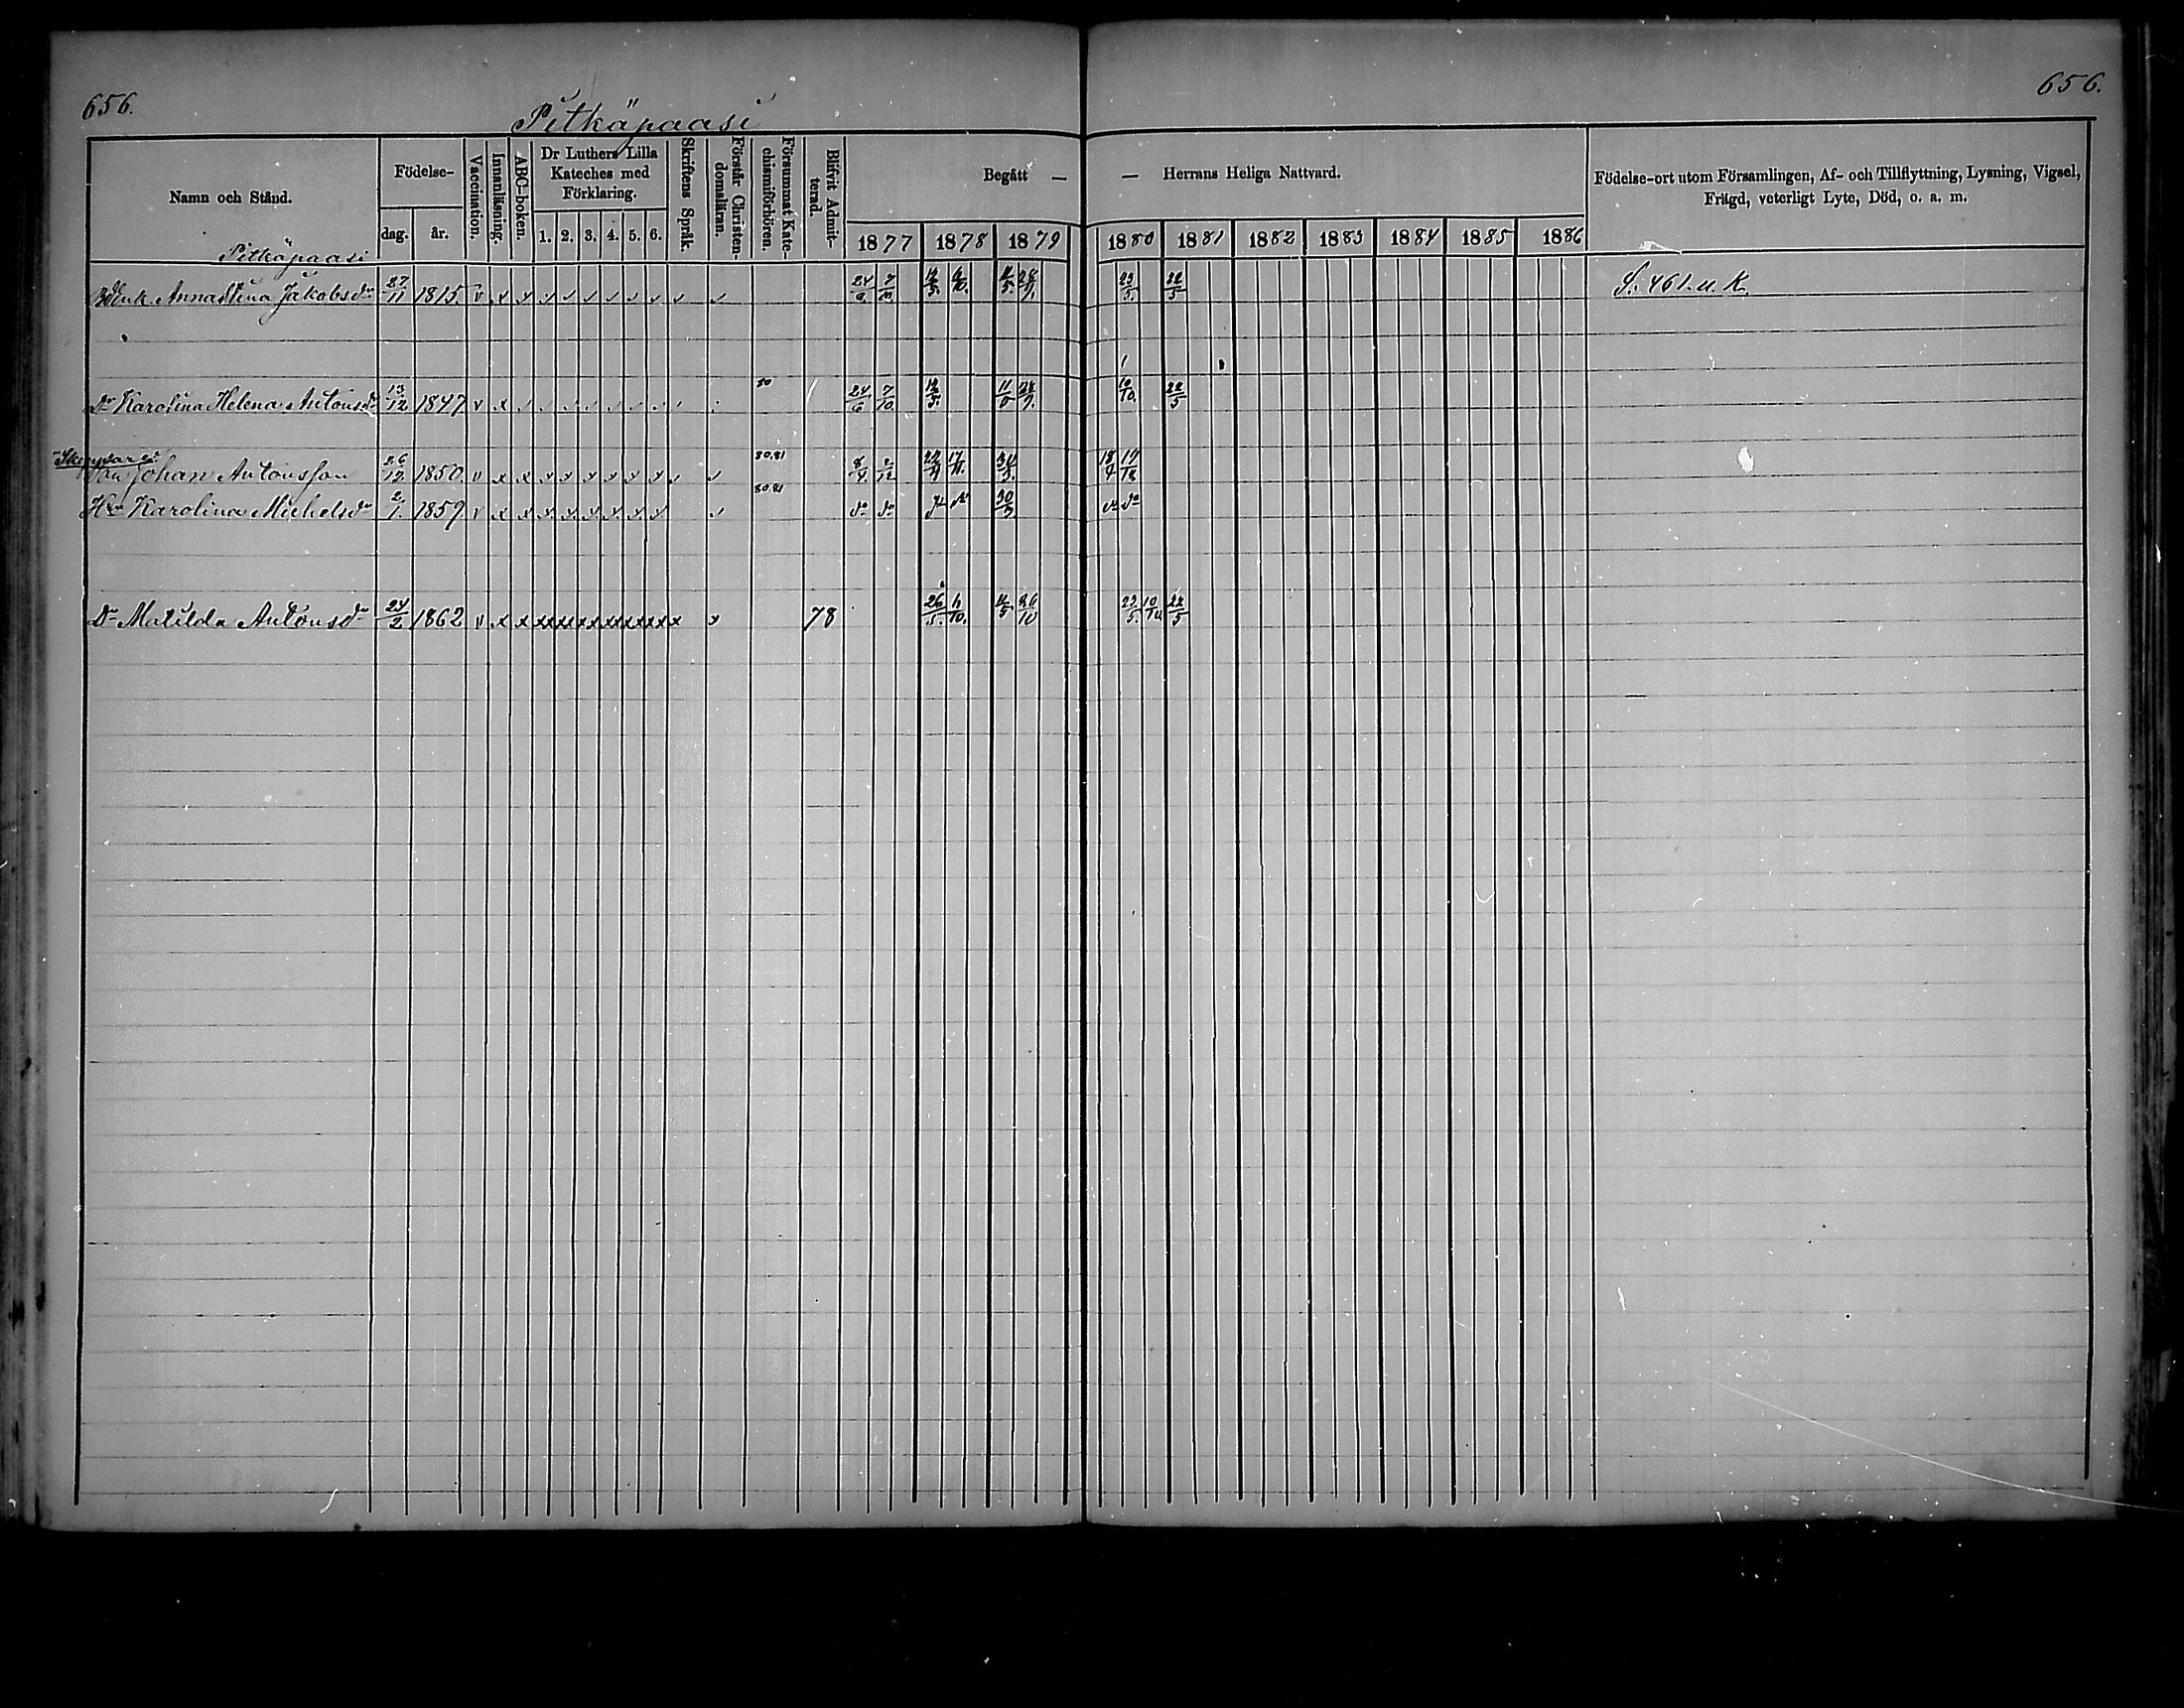 656.
Pitkäpaasi
656.
Namn och Stånd.
Födelse-
dag.
år.
Vaccination.
Innanläsning.
ABC-boken.
Dr Luthers Lilla
Kateches med
Förklaring.
1. 2. 3. 4. 5. 6.
Skriftens Språk.
Förstår Christen-
domsläran.
Försummat Kate-
chismiförhören.
Blifvit Admit-
terad.
Begått —
— Herrans Heliga Nattvard.
1877 1878 1879
1880 1881 1882 1883 1884 1885 1886
Födelse-ort utom Församlingen, Af- och Tillflyttning, Lysning, Vigsel,
Frägd, veterligt Lyte, Död, o. a. m.
Pitkäpaasi
Enk. Anna Stina Jakobsdr 27/11 1815 v x x 24/ 7/ 23/5. 22/5 S. 461. u. K.
Dr Karolina Helena Antonsdr 13/12 1847 v x 80 24/6 7/10. 11/ 10/10. 22/5
Son Johan Antonsson 26/12 1850. v x x 80.81
Hu Karolina Michelsdr 2/1. 1859 v x x 80.81 do do 30/
Dr Matilda Antonsdr 24/2 1862 v x x xx xx xx xx xx xx x 78 26/5. 6/10. 26/10 23/5. 10/10 22/5